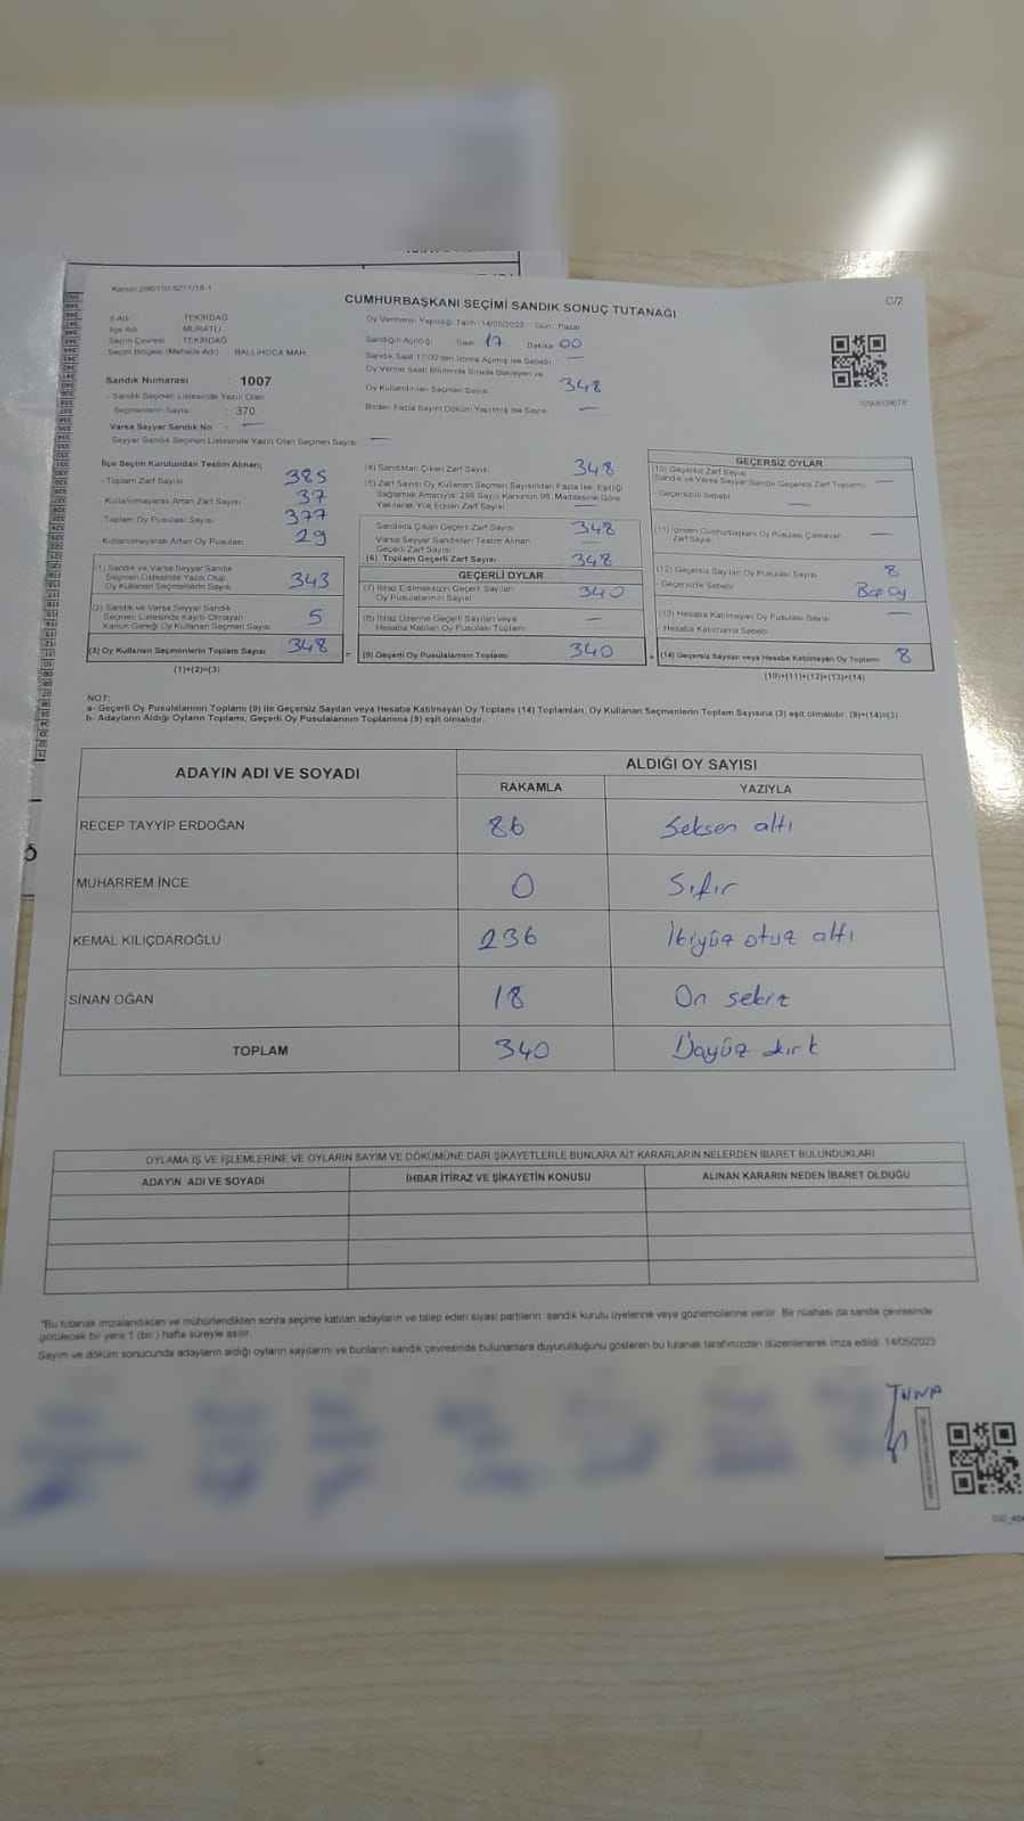 CUMHURBAŞKANI SEÇİMİ SANDIK SONUÇ TUTANAĞI
C/2
İl Adı : TEKİRDAĞ
İlçe Adı : MURATLI
Seçim Çevresi : TEKİRDAĞ
Seçim Bölgesi (Mahalle Adı) : BALLIHOCA MAH.
Sandık Numarası : 1007
- Sandık Seçmen Listesinde Yazılı Olan
Seçmenlerin Sayısı : 370
Varsa Seyyar Sandık No : —
Seyyar Sandık Seçmen Listesinde Yazılı Olan Seçmen Sayısı —
Oy Vermenin Yapıldığı Tarih : 14/05/2023 Gün : Pazar
Sandığın Açılışı Saat 17 Dakika 00
Oy Kullandırılan Seçmen Sayısı 348
Birden Fazla Sayım Döküm Yapılmış ise Sayısı —
İlçe Seçim Kurulundan Teslim Alınan;
- Toplam Zarf Sayısı 385
- Kullanılmayarak Artan Zarf Sayısı 37
Toplam Oy Pusulası Sayısı 377
- Kullanılmayarak Artan Oy Pusulası 29
(1) Sandık ve Varsa Seyyar Sandık
Seçmen Listesinde Yazılı Olup
Oy Kullanan Seçmenlerin Sayısı 343
(2) Sandık ve Varsa Seyyar Sandık
Seçmen Listesinde Kayıtlı Olmayan
Kanun Gereği Oy Kullanan Seçmen Sayısı 5
(3) Oy Kullanan Seçmenlerin Toplam Sayısı 348
(1)+(2)=(3)
(4) Sandıktan Çıkan Zarf Sayısı 348
(5) Zarf Sayısı Oy Kullanan Seçmen Sayısından Fazla ise, Eşitliği
Sağlamak Amacıyla; 298 Sayılı Kanunun 98. Maddesine Göre
Yakılarak Yok Edilen Zarf Sayısı —
Sandıkta Çıkan Geçerli Zarf Sayısı 348
Varsa Seyyar Sandıktan Teslim Alınan
Geçerli Zarf Sayısı —
(6) Toplam Geçerli Zarf Sayısı 348
GEÇERLİ OYLAR
(7) İtiraz Edilmeksizin Geçerli Sayılan
Oy Pusulalarının Sayısı 340
(8) İtiraz Üzerine Geçerli Sayılan veya
Hesaba Katılan Oy Pusulası Toplamı —
(9) Geçerli Oy Pusulalarının Toplamı 340
GEÇERSİZ OYLAR
(10) Geçersiz Zarf Sayısı
Sandık ve Varsa Seyyar Sandık Geçersiz Zarf Toplamı —
Geçersizlik Sebebi —
(11) İçinden Cumhurbaşkanı Oy Pusulası Çıkmayan
Zarf Sayısı —
(12) Geçersiz Sayılan Oy Pusulası Sayısı 8
- Geçersizlik Sebebi Boş Oy
(13) Hesaba Katılmayan Oy Pusulası Sayısı —
Hesaba Katılmama Sebebi
(14) Geçersiz Sayılan veya Hesaba Katılmayan Oy Toplamı 8
(10)+(11)+(12)+(13)=(14)
NOT:
a- Geçerli Oy Pusulalarının Toplamı (9) ile Geçersiz Sayılan veya Hesaba Katılmayan Oy Toplamı (14) Toplamları, Oy Kullanan Seçmenlerin Toplam Sayısına (3) eşit olmalıdır. (9)+(14)=(3)
b- Adayların Aldığı Oyların Toplamı, Geçerli Oy Pusulalarının Toplamına (9) eşit olmalıdır.
ADAYIN ADI VE SOYADI
ALDIĞI OY SAYISI
RAKAMLA YAZIYLA
RECEP TAYYİP ERDOĞAN 86 Seksen altı
MUHARREM İNCE 0 Sıfır
KEMAL KILIÇDAROĞLU 236 İkiyüz otuz altı
SİNAN OĞAN 18 On sekiz
TOPLAM 340 Üçyüz kırk
OYLAMA İŞ VE İŞLEMLERİNE VE OYLARIN SAYIM VE DÖKÜMÜNE DAİR ŞİKAYETLERLE BUNLARA AİT KARARLARIN NELERDEN İBARET BULUNDUKLARI
ADAYIN ADI VE SOYADI İHBAR İTİRAZ VE ŞİKAYETİN KONUSU ALINAN KARARIN NEDEN İBARET OLDUĞU
"Bu tutanak imzalandıktan ve mühürlendikten sonra seçime katılan adayların ve talep eden siyasi partilerin sandık kurulu üyelerine veya gözlemcilerine verilir. Bir nüshası da sandık çevresinde
görülecek bir yere 1 (bir) hafta süreyle asılır.
Sayım ve döküm sonucunda adayların aldığı oyların sayılarını ve bunların sandık çevresinde bulunanlara duyurulduğunu gösteren bu tutanak tarafımızdan düzenlenerek imza edildi. 14/05/2023